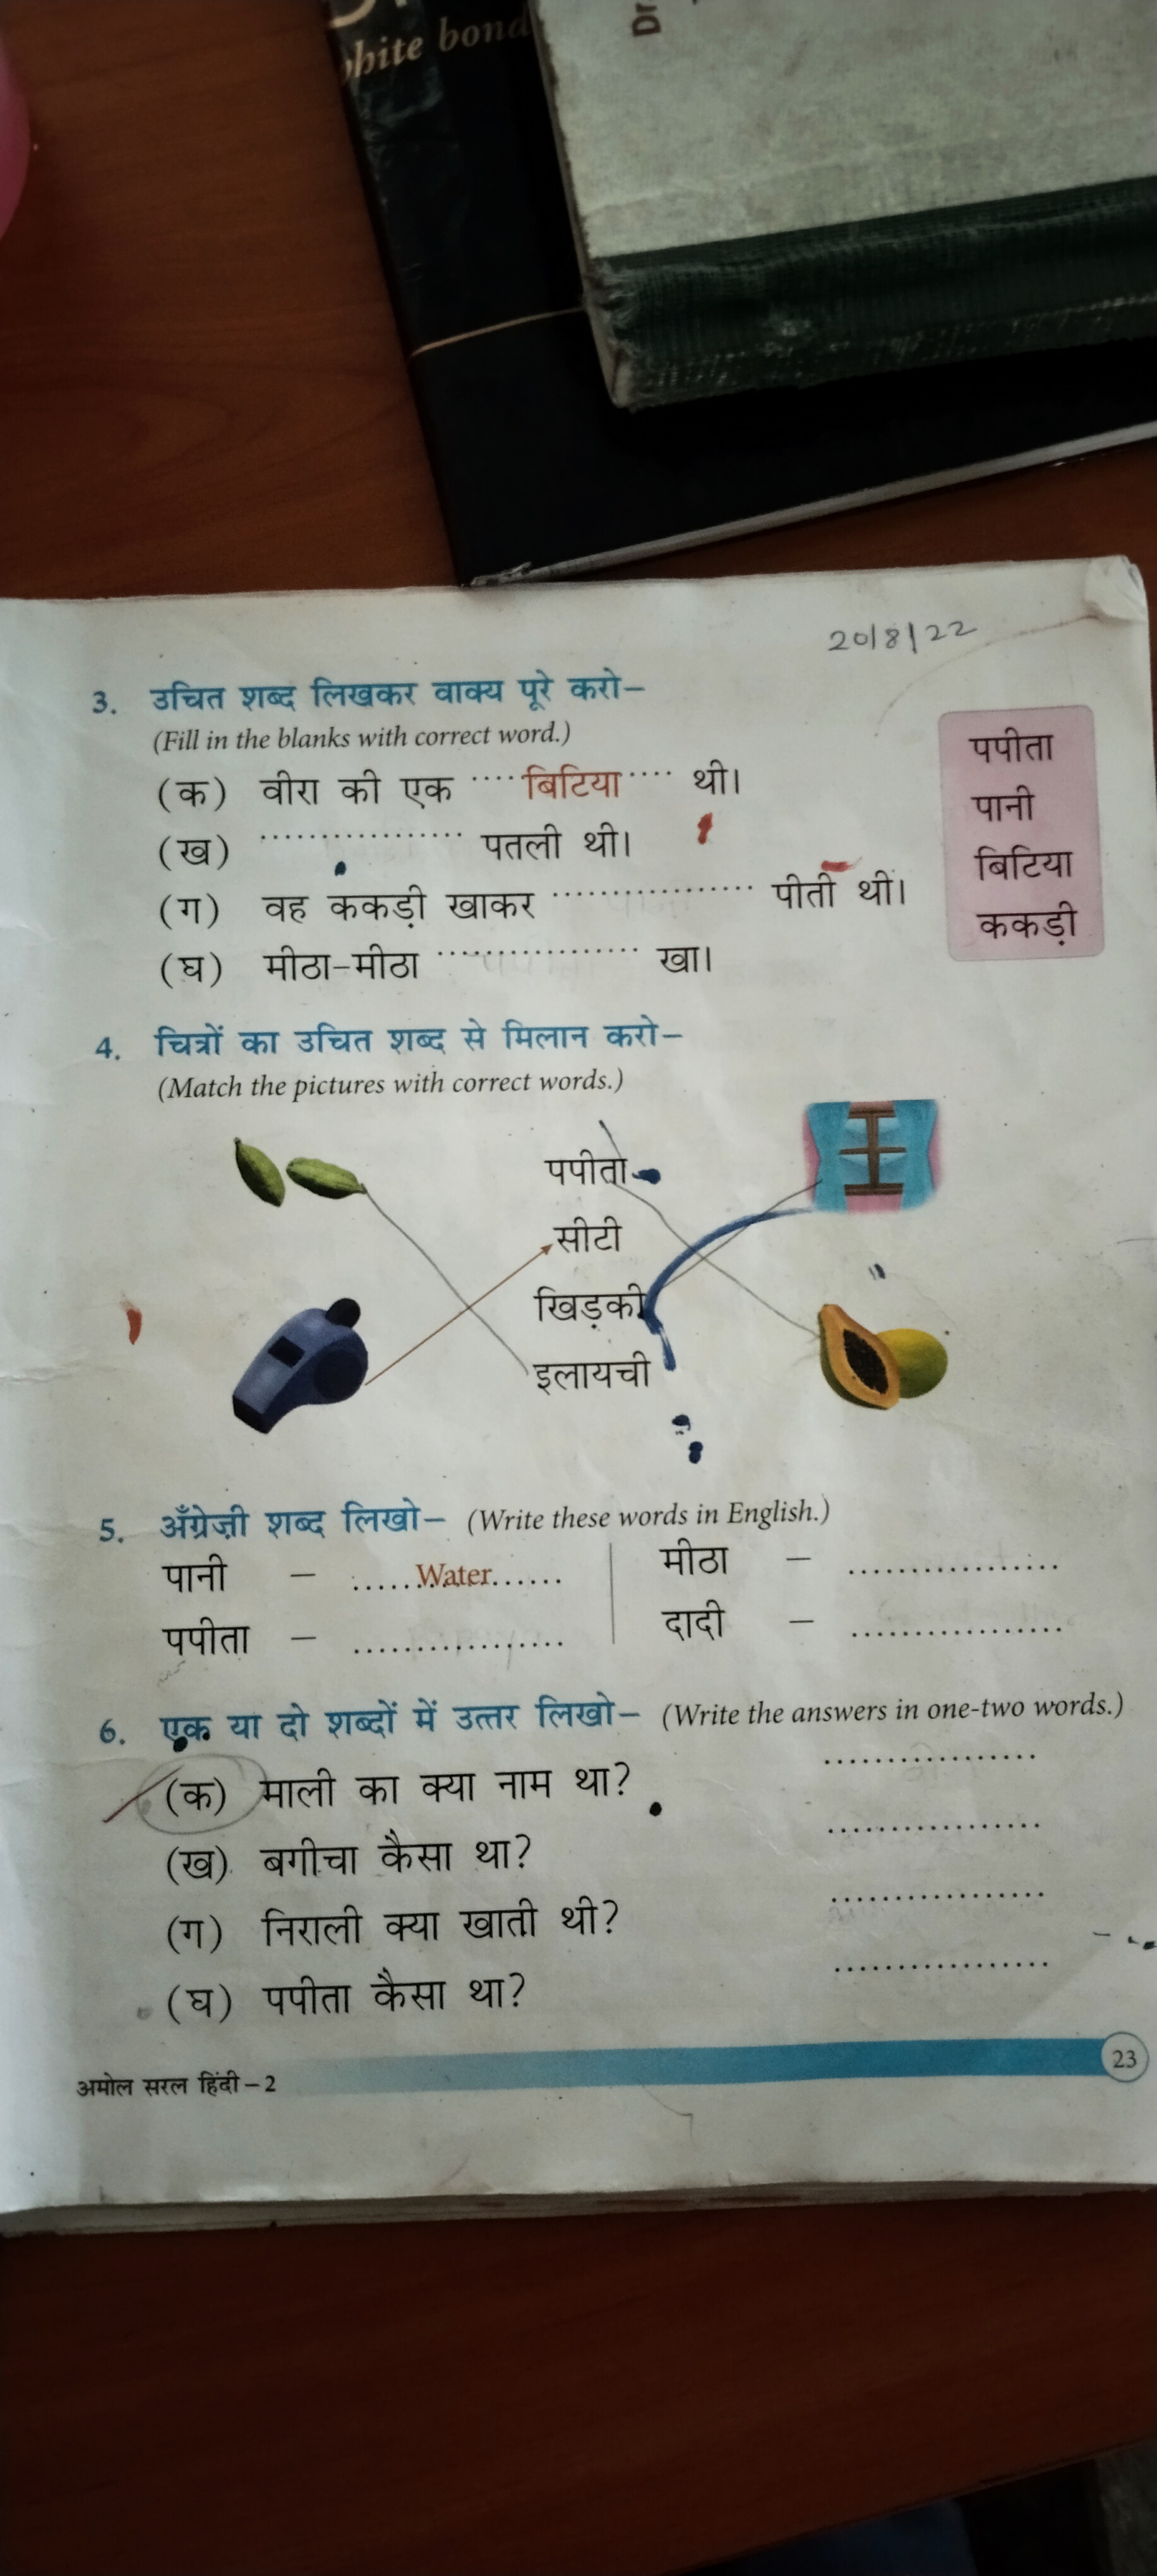 white bond
Dr
20/8/22
3. उचित शब्द लिखकर वाक्य पूरे करो–
(Fill in the blanks with correct word.)
(क) वीरा की एक ····बिटिया···· थी।
(ख) .................. पतली थी।
(ग) वह ककड़ी खाकर .................. पीती थी।
(घ) मीठा-मीठा .................. खा।
पपीता
पानी
बिटिया
ककड़ी
4. चित्रों का उचित शब्द से मिलान करो–
(Match the pictures with correct words.)
पपीता
सीटी
खिड़की
इलायची
5. अँग्रेज़ी शब्द लिखो– (Write these words in English.)
पानी – ......Water...... मीठा – ..................
पपीता – .................. दादी – ..................
6. एक या दो शब्दों में उत्तर लिखो– (Write the answers in one-two words.)
(क) माली का क्या नाम था? ..................
(ख) बगीचा कैसा था? ..................
(ग) निराली क्या खाती थी? ..................
(घ) पपीता कैसा था? ..................
अमोल सरल हिंदी – 2
23